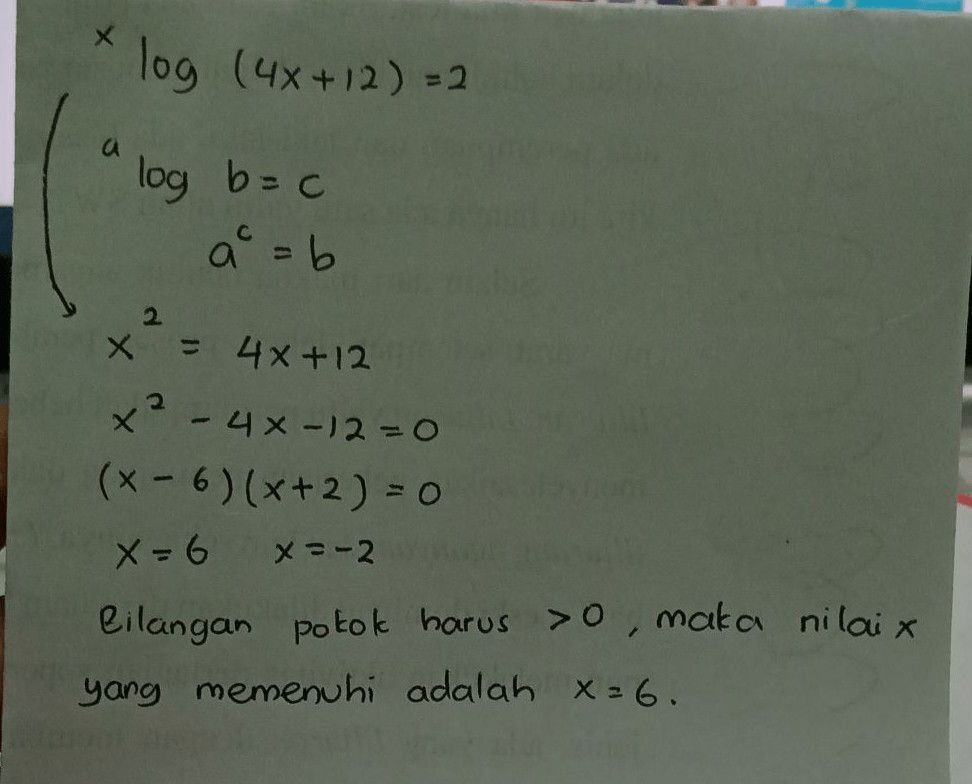 ˣ log (4x+12) = 2
ᵃ log b = c
aᶜ = b
x² = 4x+12
x² - 4x - 12 = 0
(x - 6)(x+2) = 0
x = 6 x = -2
Bilangan pokok harus > 0 , maka nilai x
yang memenuhi adalah x = 6 .